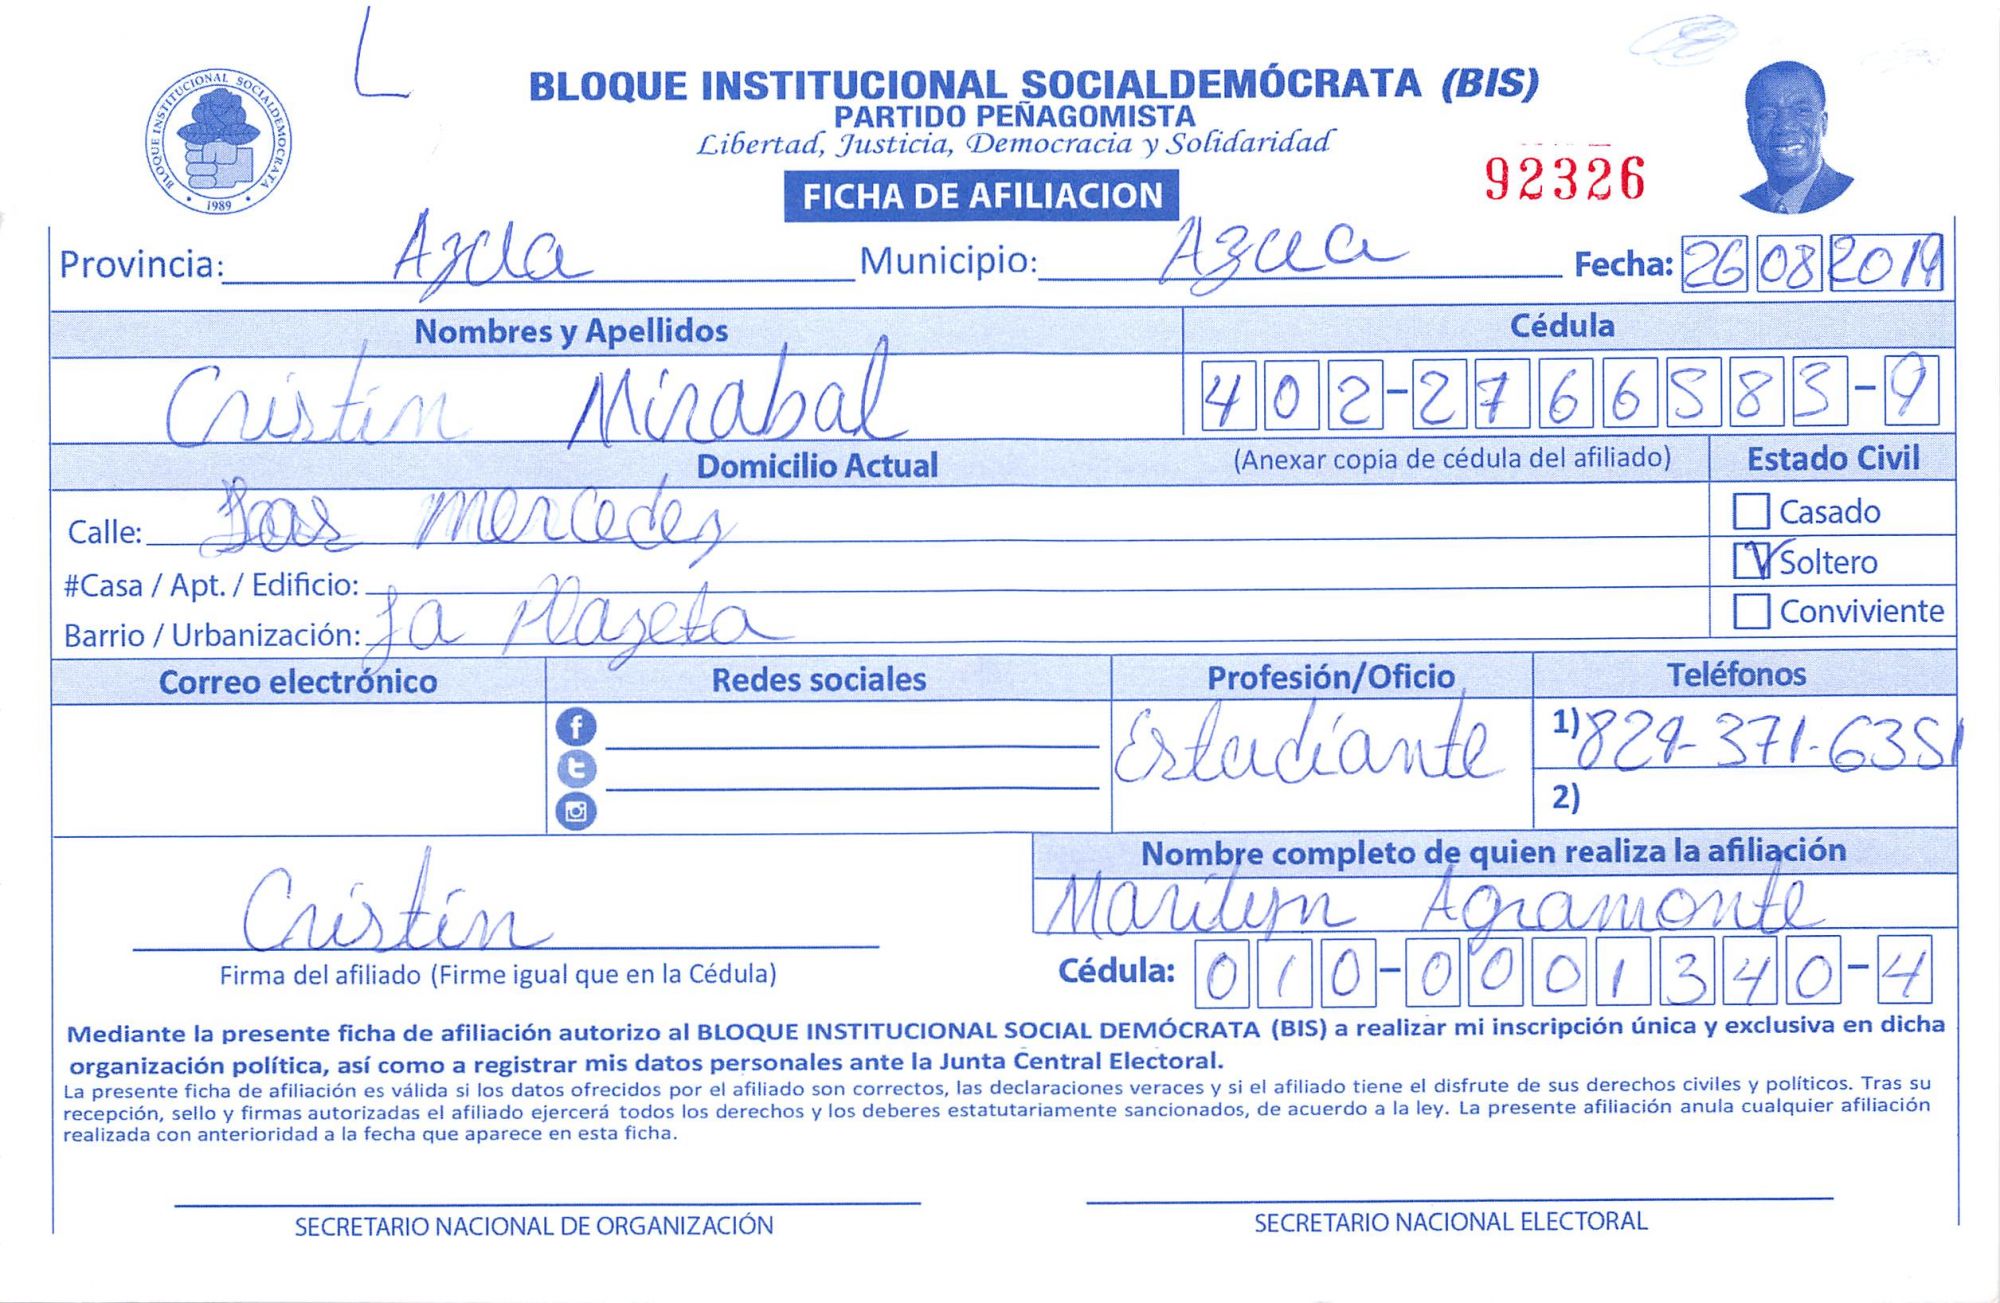 L
BLOQUE INSTITUCIONAL SOCIALDEMÓCRATA (BIS)
PARTIDO PEÑAGOMISTA
Libertad, Justicia, Democracia y Solidaridad
BLOQUE INSTITUCIONAL SOCIALDEMOCRATA
1989
92326
FICHA DE AFILIACION
Provincia: Azua Municipio: Azua Fecha: 26 08 2019
Nombres y Apellidos Cédula
Cristin Mirabal 402-2766583-9
Domicilio Actual (Anexar copia de cédula del afiliado) Estado Civil
Calle: Las Mercedes Casado
#Casa / Apt. / Edificio: Soltero
Barrio / Urbanización: La Plazeta Conviviente
Correo electrónico Redes sociales Profesión/Oficio Teléfonos
Estudiante 1) 829-371-6351
2)
Nombre completo de quien realiza la afiliación
Cristin Marilyn Agramonte
Firma del afiliado (Firme igual que en la Cédula) Cédula: 010-0001340-4
Mediante la presente ficha de afiliación autorizo al BLOQUE INSTITUCIONAL SOCIAL DEMÓCRATA (BIS) a realizar mi inscripción única y exclusiva en dicha
organización política, así como a registrar mis datos personales ante la Junta Central Electoral.
La presente ficha de afiliación es válida si los datos ofrecidos por el afiliado son correctos, las declaraciones veraces y si el afiliado tiene el disfrute de sus derechos civiles y políticos. Tras su
recepción, sello y firmas autorizadas el afiliado ejercerá todos los derechos y los deberes estatutariamente sancionados, de acuerdo a la ley. La presente afiliación anula cualquier afiliación
realizada con anterioridad a la fecha que aparece en esta ficha.
SECRETARIO NACIONAL DE ORGANIZACIÓN SECRETARIO NACIONAL ELECTORAL